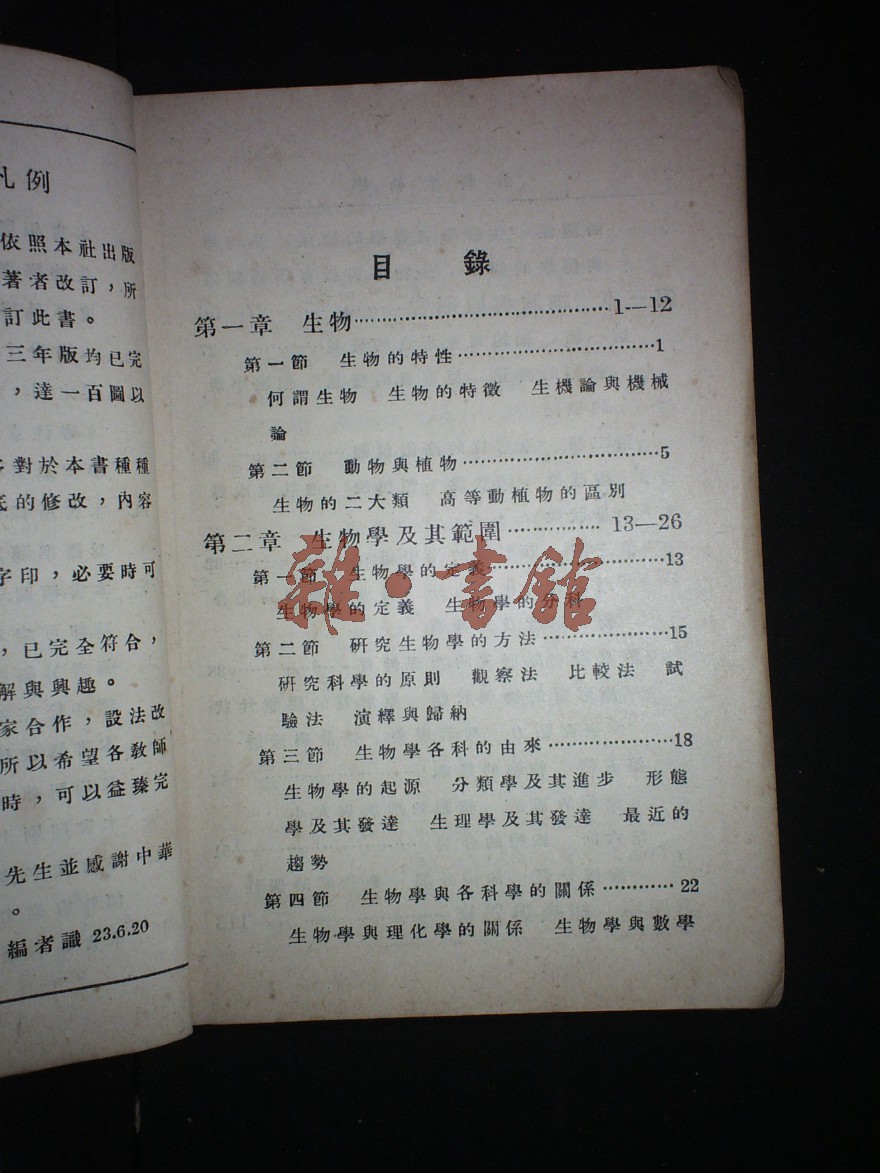 凡例
依照本社出版
著者改訂，所
訂此書。
三年版均已完
，達一百圖以
對於本書種種
底的修改，內容
字印，必要時可
，已完全符合，
解與興趣。
家合作，設法改
所以希望各敎師
時，可以益臻完
先生並感謝中華
。
編者識 23.6.20
目錄
第一章 生物………………………………1—12
第一節 生物的特性………………………1
何謂生物 生物的特徵 生機論與機械
論
第二節 動物與植物………………………5
生物的二大類 高等動植物的區別
第二章 生物學及其範圍……………13—26
第一節 生物學的定義…………………13
生物學的定義 生物學的分科
第二節 硏究生物學的方法……………15
硏究科學的原則 觀察法 比較法 試
驗法 演繹與歸納
第三節 生物學各科的由來……………18
生物學的起源 分類學及其進步 形態
學及其發達 生理學及其發達 最近的
趨勢
第四節 生物學與各科學的關係…………22
生物學與理化學的關係 生物學與數學
雜·書館